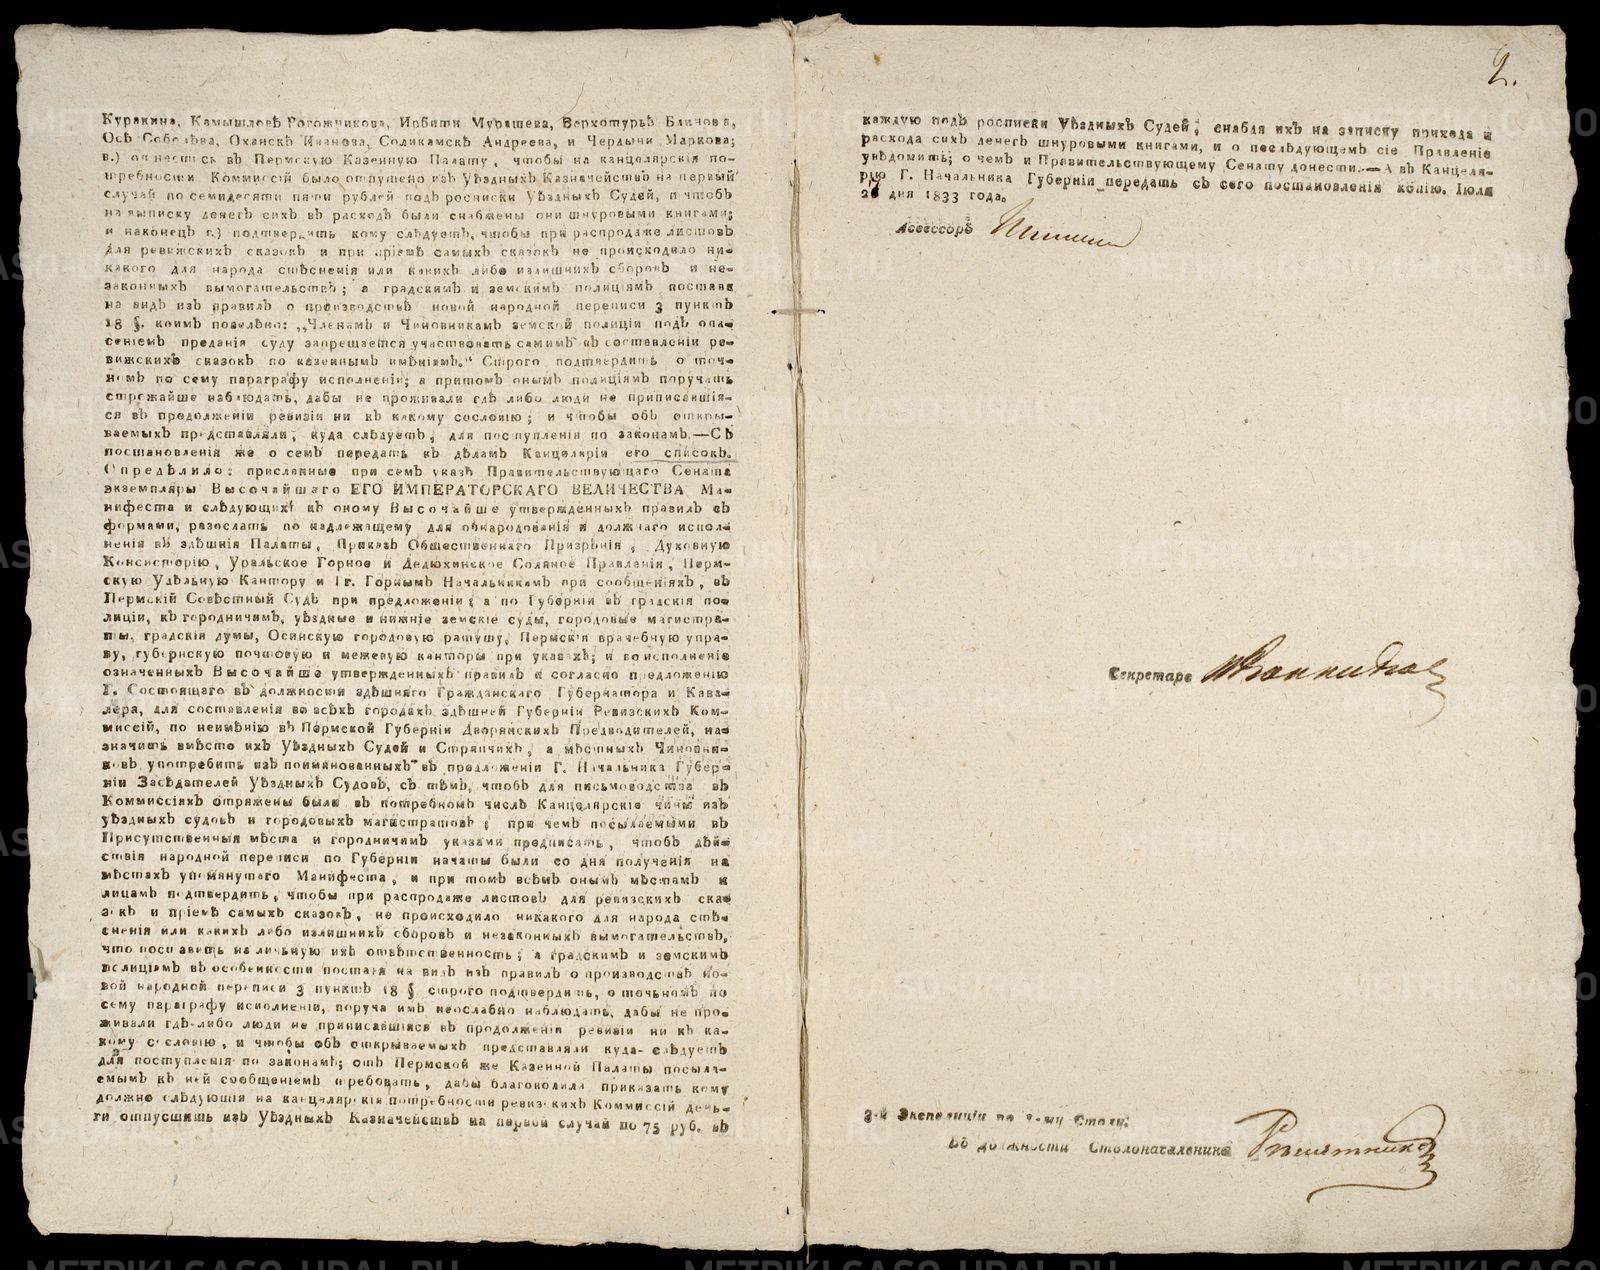 Куракина, Камышловѣ Рогожникова, Ирбити Мурашева, Верхотурьѣ Блинова,
Осѣ Соболева, Оханскѣ Иванова, Соликамскѣ Андреева, и Чердыни Маркова;
в.) отнестись въ Пермскую Казенную Палату, чтобы на канцелярскія по-
требности Коммиссій было отпущено изъ Уѣздныхъ Казначействъ на первый
случай по семидесяти пяти рублей подъ росписки Уѣздныхъ Судей, и чтобъ
на выписку денегъ сихъ въ расходъ были снабжены они шнуровыми книгами;
и наконецъ г.) подтвердить кому слѣдуетъ, чтобы при распродаже листовъ
для ревижскихъ сказокъ и при пріемѣ самыхъ сказокъ не происходило ни-
какого для народа стѣсненія или какихъ либо излишнихъ сборовъ и не-
законныхъ вымогательствъ; а градскимъ и земскимъ полиціямъ поставя
на видъ изъ правилъ о производствѣ новой народной переписи 3 пунктъ
18 §. коимъ повелѣно: „Членамъ и Чиновникамъ земской полиціи подъ опа-
сеніемъ преданія суду запрещается участвовать самимъ въ составленіи ре-
вижскихъ сказокъ по казеннымъ имѣніямъ.“ Строго подтвердить о точ-
номъ по сему параграфу исполненіи; а притомъ онымъ полиціямъ поручить
строжайше наблюдать, дабы не проживали гдѣ либо люди не приписавшія-
ся въ продолженіи ревизіи ни къ какому сословію; и чтобы объ откры-
ваемыхъ представляли, куда слѣдуетъ, для поступленія по законамъ.—Съ
постановленія же о семъ передать къ дѣламъ Канцеляріи его списокъ.
Опредѣлило: присланные при семъ указѣ Правительствующаго Сената
экземпляры Высочайшаго ЕГО ИМПЕРАТОРСКАГО ВЕЛИЧЕСТВА Ма-
нифеста и слѣдующихъ къ оному Высочайше утвержденныхъ правилъ съ
формами, разослать по надлежащему для обнародованія и должнаго испол-
ненія въ здѣшнія Палаты, Приказъ Общественнаго Призрѣнія, Духовную
Консисторію, Уральское Горное и Дедюхинское Соляное Правленія, Перм-
скую Удѣльную Кантору и Гг. Горнымъ Начальникамъ при сообщеніяхъ, въ
Пермскій Совѣстный Судъ при предложеніи; а по Губерніи въ градскія по-
лиціи, къ городничимъ, уѣздные и нижніе земскіе суды, городовые магистра-
ты, градскія думы, Осинскую городовую ратушу, Пермскія врачебную упра-
ву, губернскую почтовую и межевую канторы при указахъ; и во исполненіе
означенныхъ Высочайше утвержденныхъ правилъ и согласно предложенію
Г. Состоящаго въ должности здѣшняго Гражданскаго Губернатора и Кава-
лера, для составленія во всѣхъ городахъ здѣшней Губерніи Ревизскихъ Ком-
миссій, по неимѣнію въ Пермской Губерніи Дворянскихъ Предводителей, на-
значить вмѣсто ихъ Уѣздныхъ Судей и Стряпчихъ, а мѣстныхъ Чиновни-
ковъ употребить изъ поименованныхъ въ предложеніи Г. Начальника Губер-
ніи Засѣдателей Уѣздныхъ Судовъ, съ тѣмъ, чтобъ для письмоводства въ
Коммиссіяхъ отряжены были въ потребномъ числѣ Канцелярскіе чины изъ
уѣздныхъ судовъ и городовыхъ магистратовъ; при чемъ посылаемыми въ
Присутственныя мѣста и городничимъ указами предписать, чтобъ дѣй-
ствія народной переписи по Губерніи начаты были со дня полученія на
мѣстахъ упомянутаго Манифеста, и при томъ всѣмъ онымъ мѣстамъ и
лицамъ подтвердить, чтобы при распродаже листовъ для ревизскихъ ска-
зокъ и пріемѣ самыхъ сказокъ, не происходило никакого для народа стѣ-
сненія или какихъ либо излишнихъ сборовъ и незаконныхъ вымогательствъ,
что поставить на личьную ихъ отвѣтственность; а градскимъ и земскимъ
полиціямъ въ особенности поставя на видъ изъ правилъ о производствѣ но-
вой народной переписи 3 пунктъ 18 § строго подтвердить, о точьномъ по
сему параграфу исполненіи, поруча имъ неослабно наблюдать, дабы не про-
живали гдѣ-либо люди не приписавшіяся въ продолженіи ревизіи ни къ ка-
кому сословію, и чтобы объ открываемыхъ представляли куда-слѣдуетъ
для поступленія по законамъ; отъ Пермской же Казенной Палаты посыла-
емымъ къ ней сообщеніемъ требовать, дабы благоволила приказать кому
должно слѣдующія на канцелярскія потребности ревизскихъ Коммиссій день-
ги отпустить изъ Уѣздныхъ Казначействъ на первой случай по 75 руб. въ
2.
каждую подъ росписки Уѣздныхъ Судей, снабдя ихъ на записку прихода и
расхода сихъ денегъ шнуровыми книгами, и о послѣдующемъ сіе Правленіе
увѣдомить; о чемъ и Правительствующему Сенату донести.—А въ Канцеля-
рію Г. Начальника Губерніи передать съ сего постановленія копію. Іюля
27 дня 1833 года.
Ассессоръ
Секретарь
3-й Экспедиціи по 2-му Столу:
Въ должности Столоначальника Рѣшетниковъ